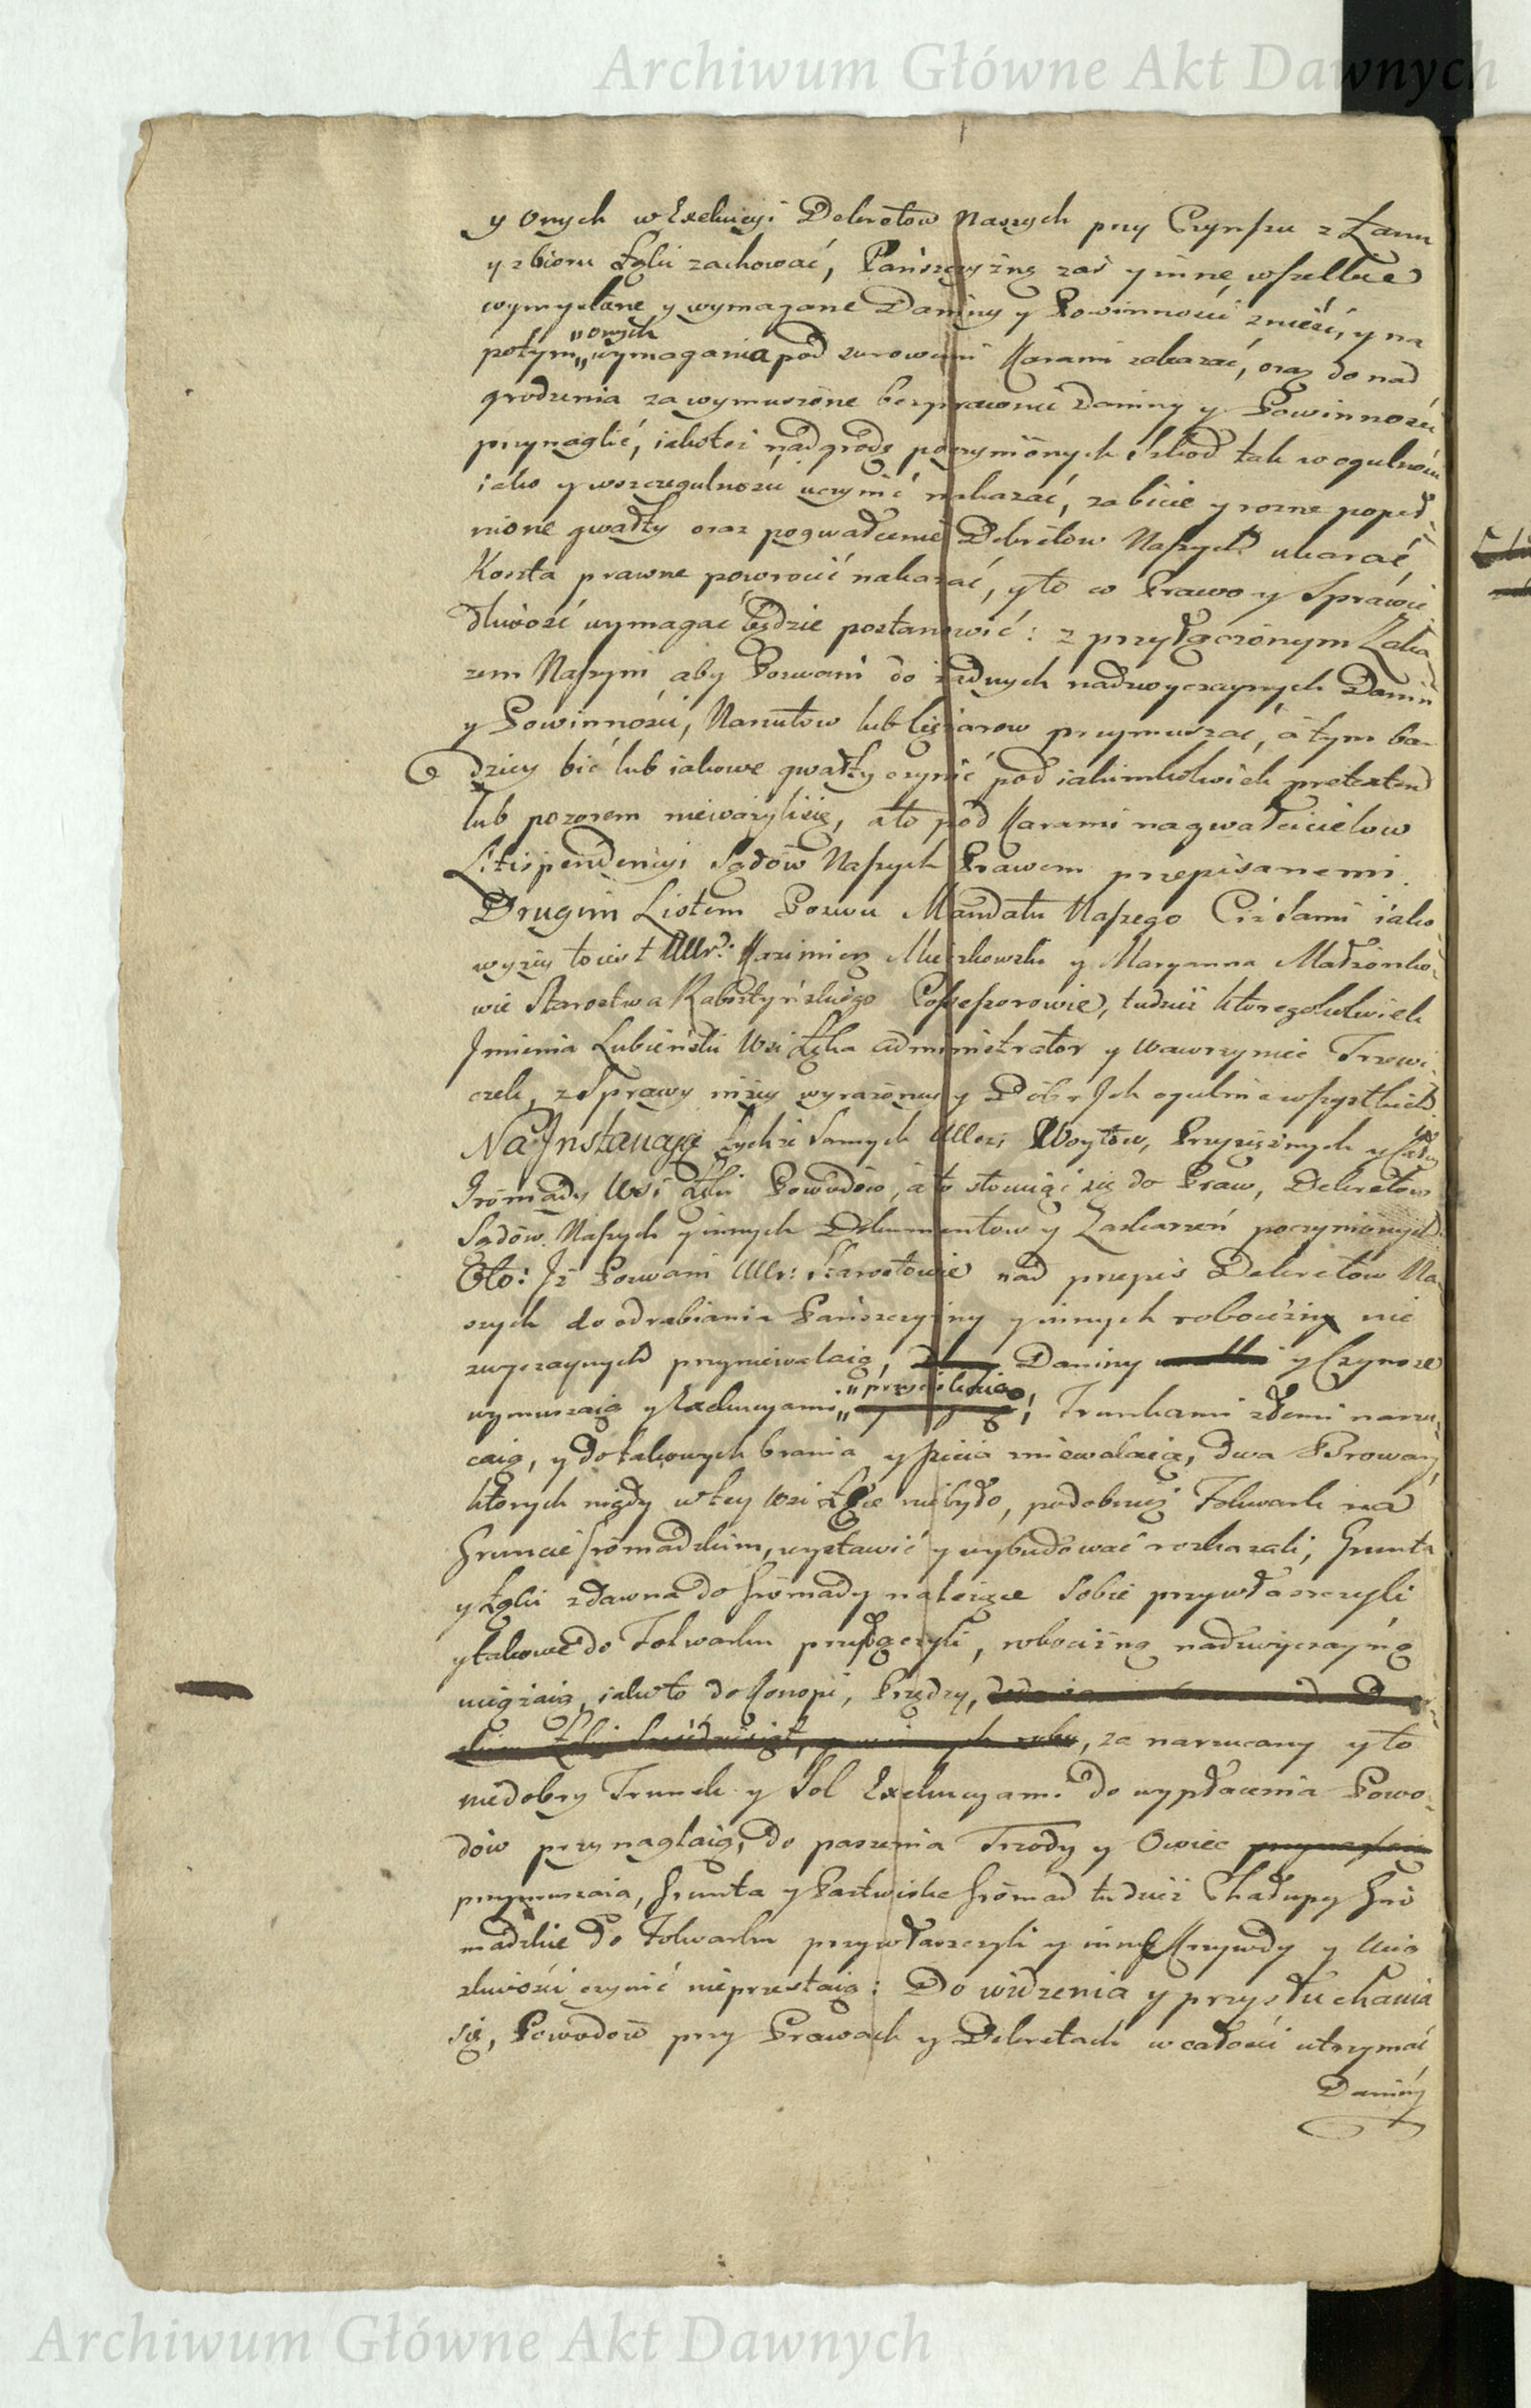 Archiwum Główne Akt Dawnych
y onych w Exekucyi Dekretow Naszych przy Czynszu z Łanu
y zbioru Łąki zachować, Pańszczyznę zaś y inne wszelkie
wymyślane y wymagane Daniny y Powinności znieść, y na
potym „onych„ wymagania pod surowemi Karami zakazać, oraz do nad
grodzenia za wymuszone bezprawnie Daniny y Powinności
przynaglić, iakoteż nadgrodę poczynionych szkod tak w ogulności
iako y w szczegulności uczynić nakazać, zabicie y rozne popeł-
nione gwałty oraz pogwałcenie Dekretow Naszych ukarać
Koszta prawne powrocić nakazać, y to co Prawo y Sprawie
dliwość wymagać będzie postanowić: z przyłączonym Zaka
zem Naszym aby Pozwani do żadnych nadzwyczaynych Danin
y Powinności, Narzutow lub Ciężarow przymuszać, a tym ba-
dziey bić lub iakowe gwałty czynić pod iakimkolwiek pretextem
lub pozorem nieważyli się, a to pod Karami na gwałcicielow
Litispendencyi Sądow Naszych Prawem przepisanemi.
Drugim Listem Pozwu Mandatu Naszego Ciż sami iako
wyżey to iest Ur: Kazimierz y Maryanna Małżonko-
wie Starostwa Rabsztyńskiego Possessorowie, tudzież któregokolwiek
Imienia Lubieński Wsi Łęka Administrator y Wawrzyniec Trzewi
czek, z Sprawy niżey wyrażoney y Dobr Ich ogulnie wszystkich
Na Instancyą tychże samych Woytow, Przysiężnych y Całey
Gromady Wsi Łęki Powodow, a to stosuiąc się do Praw, Dekretow
Sądow Naszych y innych Dokumentow y Zaskarżeń poczynionych
Oto: Iż Pozwani Ur: Starostowie nad przepis Dekretow Na-
szych do odrabiania Pańszczyzny y innych robocizn nie
zwyczaynych przyniewalaią, Daniny y Czynsze
wymuszaią y Exekucyami „przyciskaią„; Trunkami złemi narzu-
caią, y do takowych brania y picia zniewalaią, dwa Browary
ktorych nigdy w tey Wsi Łęce nie było, podobnież Folwark na
Gruncie Gromadzkim, wystawić y wybudować rozkazali, Grunta
y Łąki z dawna do Gromady należące Sobie przywłaszczyli
y takowe do Folwarku przyłączyli, robociznę nadzwyczayną
uciążaią, iako to do Konopi, Przędzy,
, za narzucany y to
niedobry Trunek y Sol Exekucyami do wypłacenia Powo-
dow przynaglaią, do paszenia Trzody y Owiec
przymuszaią, Grunta y Pastwiska Gromad tudzież Chałupy Gro
madzkie do Folwarku przywłaszczyli y inne Krzywdy y Ucią
żliwości czynić nieprzestaią: Do widzenia y przysłuchania
się, Powodow przy Prawach y Dekretach w całości utrzymać
Daniny
Archiwum Główne Akt Dawnych